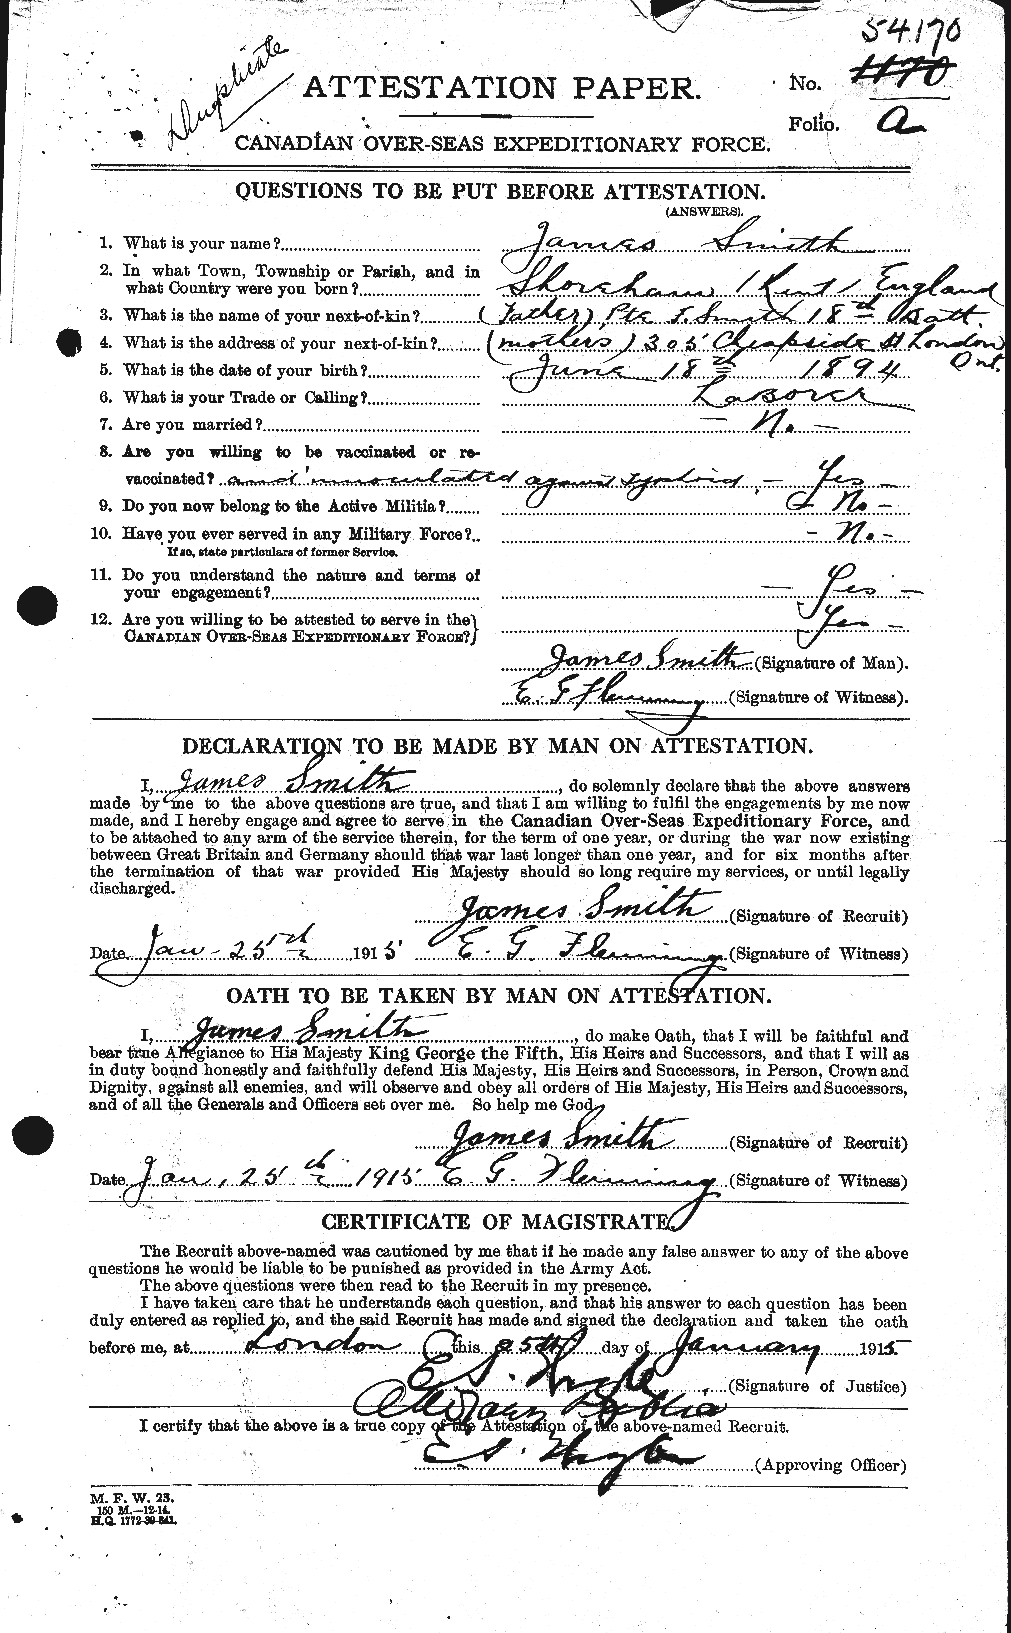 54170
Duplicate
ATTESTATION PAPER.
No. 1170
Folio. a
CANADIAN OVER-SEAS EXPEDITIONARY FORCE.
QUESTIONS TO BE PUT BEFORE ATTESTATION.
(ANSWERS).
1. What is your name? James Smith
2. In what Town, Township or Parish, and in
what Country were you born? Shoreham, Kent, England
3. What is the name of your next-of-kin? (Father) Pte J. Smith 18th Batt.
4. What is the address of your next-of-kin? (mothers) 305 Cheapside St London
Ont.
5. What is the date of your birth? June 18th 1894
6. What is your Trade or Calling? Laborer
7. Are you married? – No –
8. Are you willing to be vaccinated or re-
vaccinated? and innoculated against typhoid, – Yes –
9. Do you now belong to the Active Militia? – No –
10. Have you ever served in any Military Force? – No. –
If so, state particulars of former Service.
11. Do you understand the nature and terms of
your engagement? – Yes –
12. Are you willing to be attested to serve in the
CANADIAN OVER-SEAS EXPEDITIONARY FORCE? Yes –
James Smith (Signature of Man).
E. G. Flemming (Signature of Witness).
DECLARATION TO BE MADE BY MAN ON ATTESTATION.
I, James Smith, do solemnly declare that the above answers
made by me to the above questions are true, and that I am willing to fulfil the engagements by me now
made, and I hereby engage and agree to serve in the Canadian Over-Seas Expeditionary Force, and
to be attached to any arm of the service therein, for the term of one year, or during the war now existing
between Great Britain and Germany should that war last longer than one year, and for six months after
the termination of that war provided His Majesty should so long require my services, or until legally
discharged.
James Smith (Signature of Recruit)
Date Jan - 25th 1915 E. G. Flemming (Signature of Witness)
OATH TO BE TAKEN BY MAN ON ATTESTATION.
I, James Smith, do make Oath, that I will be faithful and
bear true Allegiance to His Majesty King George the Fifth, His Heirs and Successors, and that I will as
in duty bound honestly and faithfully defend His Majesty, His Heirs and Successors, in Person, Crown and
Dignity, against all enemies, and will observe and obey all orders of His Majesty, His Heirs and Successors,
and of all the Generals and Officers set over me. So help me God.
James Smith (Signature of Recruit)
Date Jan, 25th 1915 E G. Flemming (Signature of Witness)
CERTIFICATE OF MAGISTRATE.
The Recruit above-named was cautioned by me that if he made any false answer to any of the above
questions he would be liable to be punished as provided in the Army Act.
The above questions were then read to the Recruit in my presence.
I have taken care that he understands each question, and that his answer to each question has been
duly entered as replied to, and the said Recruit has made and signed the declaration and taken the oath
before me, at London this 25th day of January 1915
(Signature of Justice)
I certify that the above is a true copy of the Attestation of the above-named Recruit.
(Approving Officer)
M. F. W. 23.
150 M.—12-14.
H.Q. 1772-39-841.